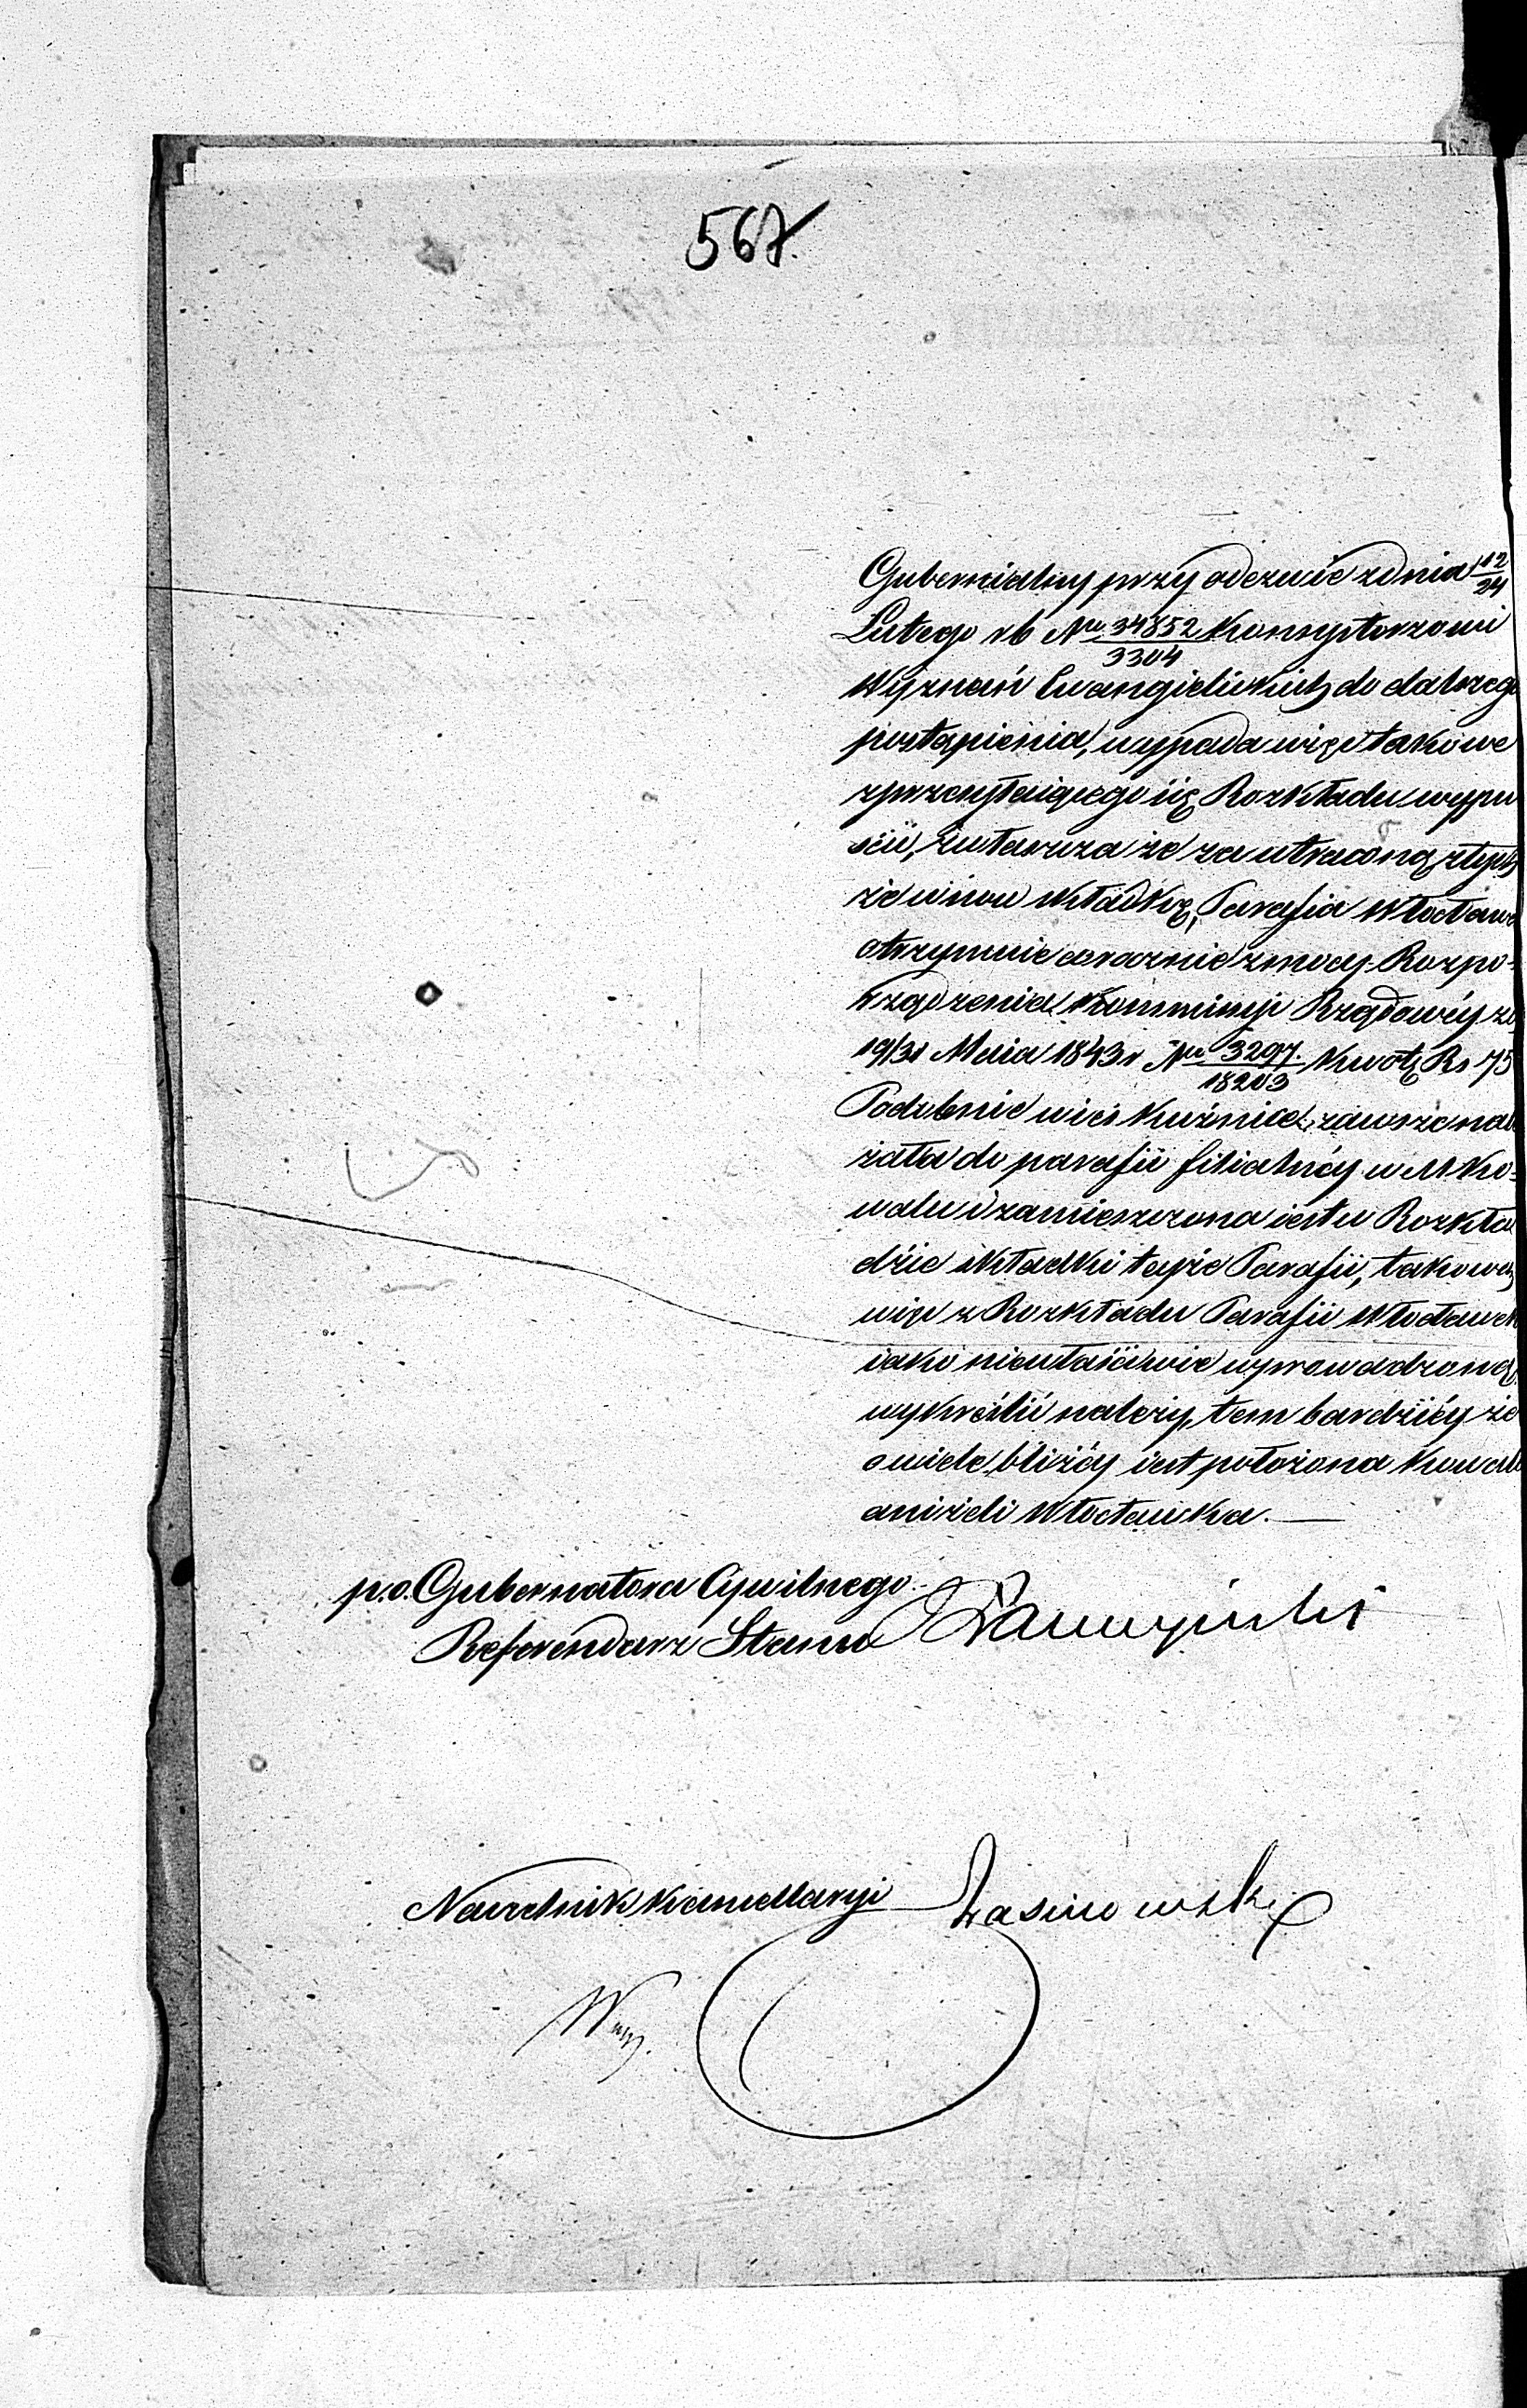 567.
Gubernialny przy odezwie zdnia 12/24
Lutego rb Nro 34852/3304 Konsystorzowi
Wyznań Ewangielickich do dalszego
postąpienia, wypada więc takowe
zprzesyłaiącego się Rozkładu wypu
ścić, zwłaszcza że za utraconą ztych
że wiów składkę, Parafia Włocławs
otrzymuie corocznie zmocy Rozpo-
rządzenia Kommissyi Rządowéy zd
19/31 Maia 1843 r Nro 3297./18203 kwotę Rs 75
Podobnie wieś Kuźnice, zawsze nale
żała do parafii filialnéy w M Ko-
walu i zamieszczona iest w Rozkła
dzie składki teyże Parafii, takową
więc z Rozkładu Parafii Włocławsk
iako niewłaściwie wprowadzoną
wykreślić należy, tem bardziéy że
o wiele bliżéy iest położona Kowala
aniżeli Włocławka.
p.o. Gubernatora Cywilnego
Referendarz Stanu
Naczelnik Kancellaryi